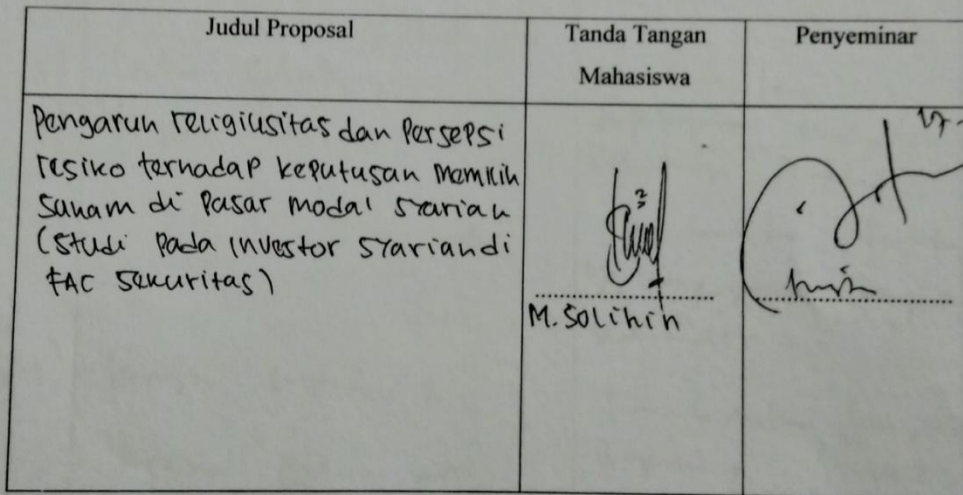 Judul Proposal
Tanda Tangan
Mahasiswa
Penyeminar
Pengaruh religiusitas dan Persepsi
resiko terhadap keputusan memilih
saham di Pasar modal syariah
(Studi pada investor syariah di
FAC Sekuritas)
M. Solihin